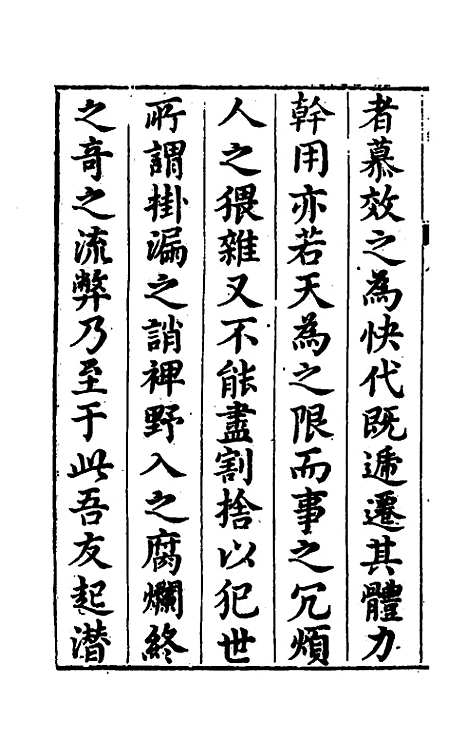 者慕效之為快代既遞遷其體力
幹用亦若天為之限而事之冗煩
人之猥雜又不能盡割捨以犯世
所謂掛漏之誚裨野入之腐爛終
之奇之流弊乃至于此吾友起潜